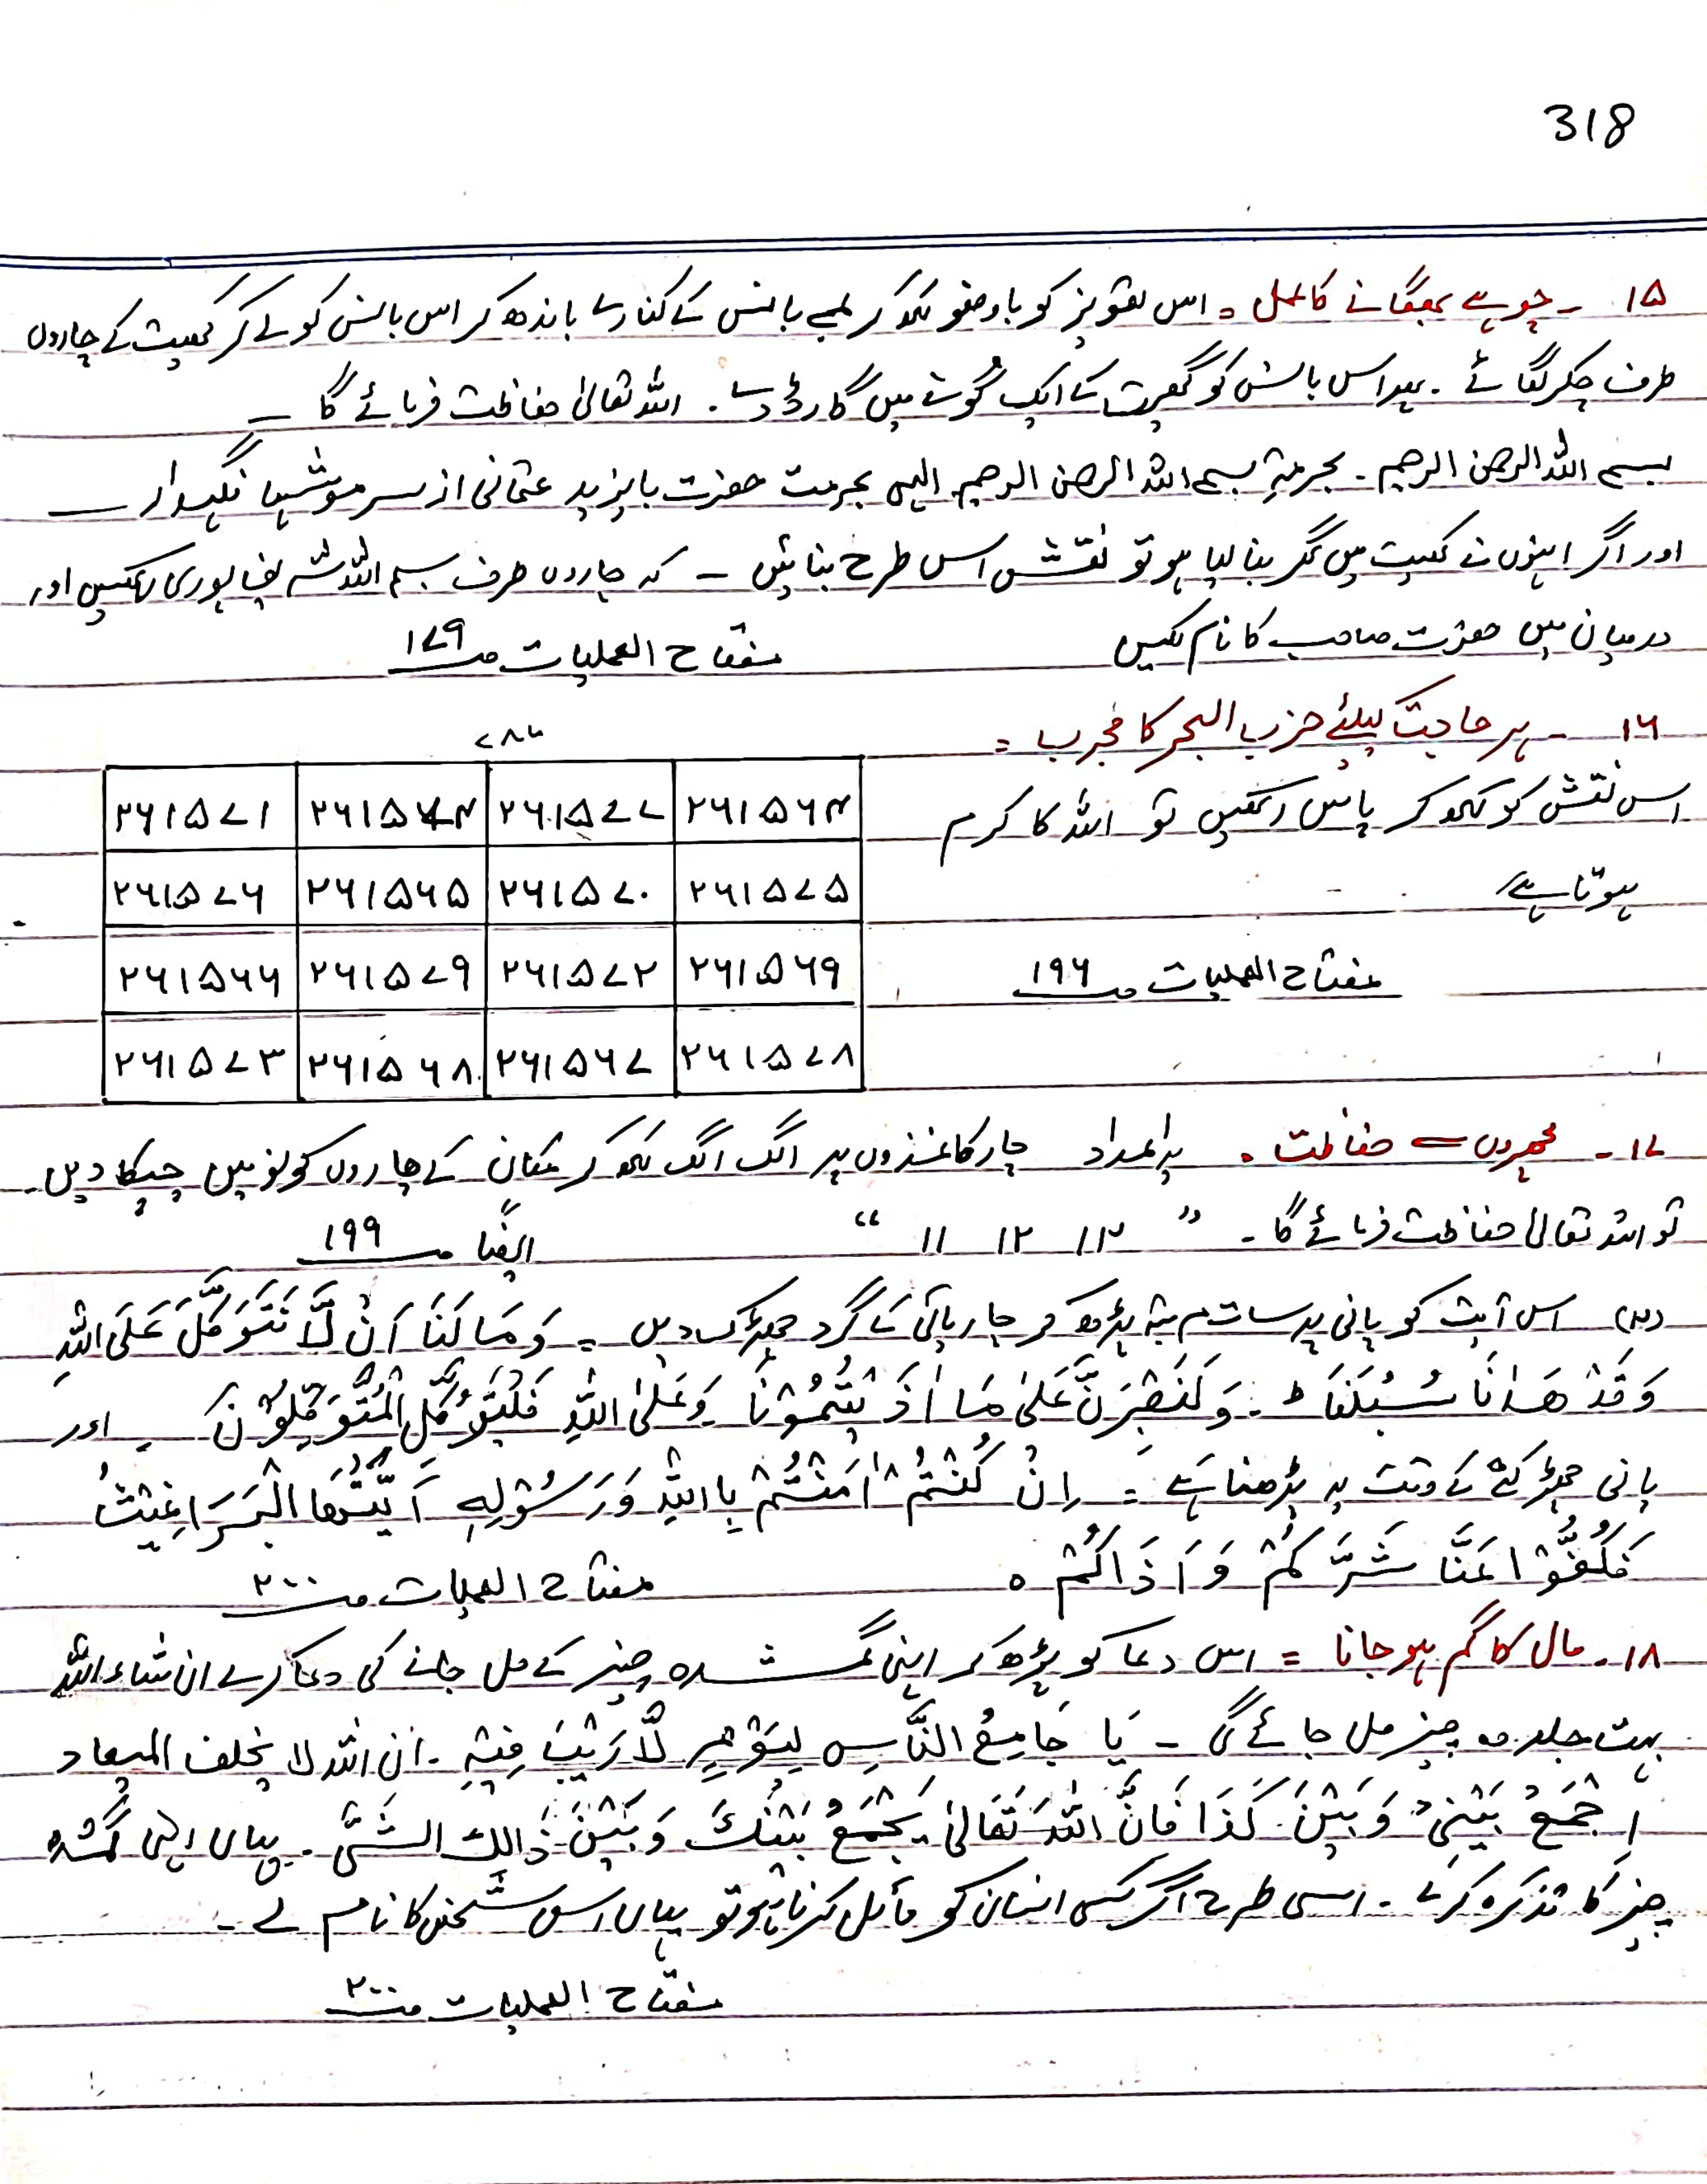 318
۱۵ ۔ چوہے بھگانے کا عمل = اس تعویز کو باوضو لکھ کر لمبے بانس کے کنارے باندھ کر اس بانس کو لے کر کھیت کے چاروں
طرف چکر لگائے ۔ پھر اس بانس کو کھیت کے ایک گوشے میں گاڑ دے ۔ اللہ تعالیٰ حفاظت فرمائے گا ۔
بسم اللہ الرحمن الرحیم ۔ بحرمۃِ بسم اللہ الرحمن الرحیم الہی بحرمت حضرت بایزید عثمانی از سر موشہا نگہدار
اور اگر انہوں نے کھیت میں گھر بنا لیا ہو تو نقش اس طرح بنائیں ۔ کہ چاروں طرف بسم اللہ شریف پوری لکھیں اور
درمیان میں حضرت صاحب کا نام لکھیں مفتاح العملیات صـ ۱۷۹
۱۶ ۔ ہر حاجت کیلئے حزب البحر کا مجرب =
۷۸۶
اس نقش کو لکھ کر پاس رکھیں تو اللہ کا کرم
ہوتا ہے
مفتاح العملیات صـ ۱۹۶
۲۶۱۵۷۱ ۲۶۱۵۷۴ ۲۶۱۵۷۷ ۲۶۱۵۶۴
۲۶۱۵۷۶ ۲۶۱۵۶۵ ۲۶۱۵۷۰ ۲۶۱۵۷۵
۲۶۱۵۶۶ ۲۶۱۵۷۹ ۲۶۱۵۷۲ ۲۶۱۵۶۹
۲۶۱۵۷۳ ۲۶۱۵۶۸ ۲۶۱۵۶۷ ۲۶۱۵۷۸
۱۷ ۔ مچھروں سے حفاظت ۔ یہ اعداد چار کاغذوں پر الگ الگ لکھ کر مکان کے چاروں کونو میں چپکا دیں ۔
تو اللہ تعالیٰ حفاظت فرمائے گا ۔ " ۱۱ ۱۲ ۱۳ " ایضًا صـ ۱۹۹
اس آیت کو پانی پر سات مرتبہ پڑھ کر چارپائی کے گرد چھڑک دیں = وَمَا لَنَا اَنْ لَّا نَتَوَکَّلَ عَلَی اللّٰہِ
وَقَدْ ھَدَانَا سُبُلَنَا ط ۔ وَلَنَصْبِرَنَّ عَلیٰ مَا اٰذَیْتُمُوْنَا وَعَلیٰ اللّٰہِ فَلْیَتَوَکَّلِ الْمُتَوَکِّلُوْنَ ۔ اور
پانی چھڑکنے کے وقت یہ پڑھنا ہے = اِنْ کُنْتُمْ اٰمَنْتُمْ بِاللّٰہِ وَرَسُوْلِہٖ اَیَّتُھَا الْبَرَاغِیْثُ
فَکُفُّوْا عَنَّا شَرَّکُمْ وَاَذَاکُمْ ہ مفتاح العملیات صـ ۲۰۰
۱۸ ۔ مال کا گم ہو جانا = اس دعا کو پڑھ کر اپنی گمشدہ چیز کے مل جانے کی دعا کرے ان شاء اللہ
بہت جلد وہ چیز مل جائے گی ۔ یَا جَامِعُ النَّاسِ لِیَوْمٍ لَّا رَیْبَ فِیْہِ ۔ ان اللہ لا یخلف المیعاد
اِجْمَعْ بَیْنِیْ وَبَیْنَ کَذَا فَاِنَّ اللّٰہَ تَعَالیٰ یَجْمَعُ بَیْنَکَ وَبَیْنَ ذَالِکَ الشَّیْ ۔ یہاں اپنی گمشدہ
چیز کا تذکرہ کرے ۔ اسی طرح اگر کسی انسان کو مائل کرنا ہو تو یہاں اس شخص کا نام لے ۔
مفتاح العملیات صـ ۲۰۰